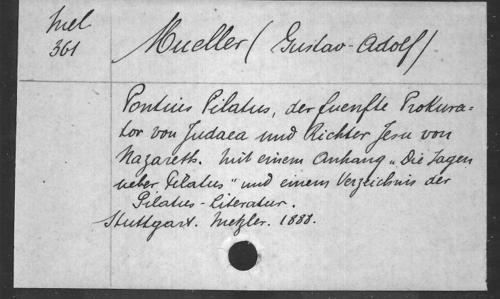 Mel
361
Mueller (Gustav-Adolf)
Pontius Pilatus, der fuenfte Prokura=
tor von Judaea und Richter Jesu von
Nazareth. Mit einem Anhang „Die Sagen
ueber Pilatus" und einem Verzeichnis der
Pilatus-Literatur.
Stuttgart. Metzler. 1888.